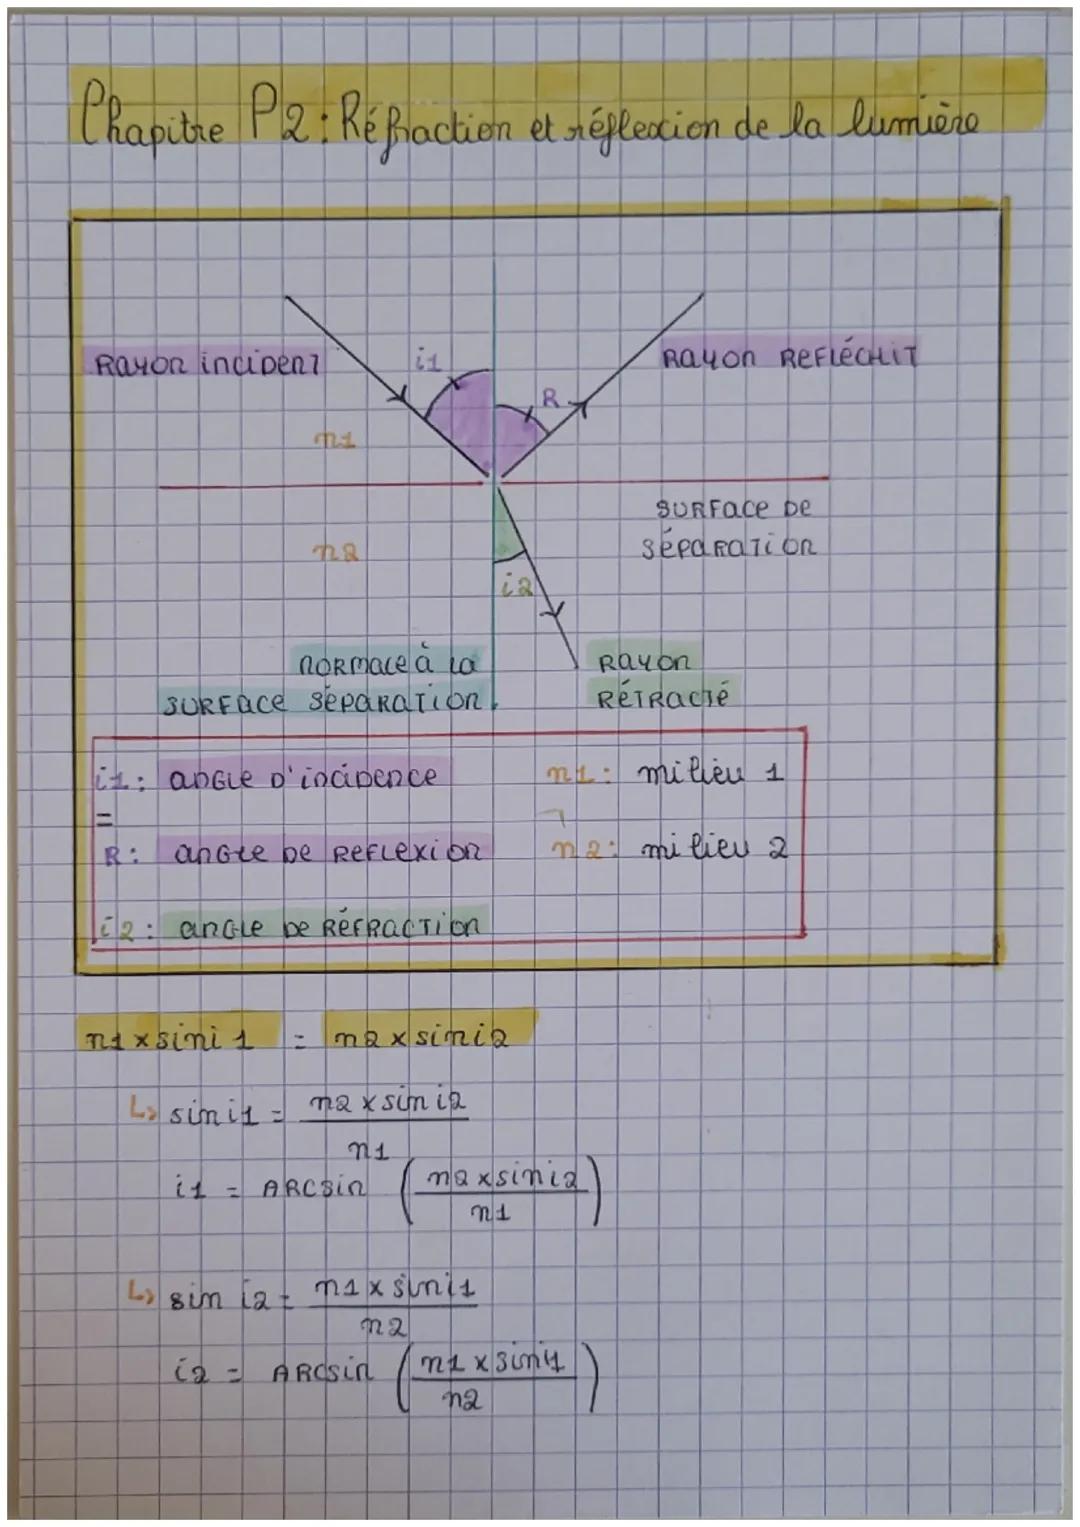 Chapitre P2 : Réfraction et réflexion de la lumière
Rayon incident
i1
R
Rayon REFLÉCHIT
n1
SURFACE DE
SÉPARATION
n2
i2
NORMALE à la
SURFACE SÉPARATION
Rayon
RÉTRACTÉ
i1 : angle D'incidence
n1 : milieu 1
=
R : angle de REFLEXION
n2 : milieu 2
i2 : angle de RÉFRACTION
n1 x sin i1 = n2 x sin i2
↳ sin i1 = n2 x sin i2
n1
i1 = ARCsin (n2 x sin i2)
n1
↳ sin i2 = n1 x sin i1
n2
i2 = ARCsin (n1 x sin i1)
n2